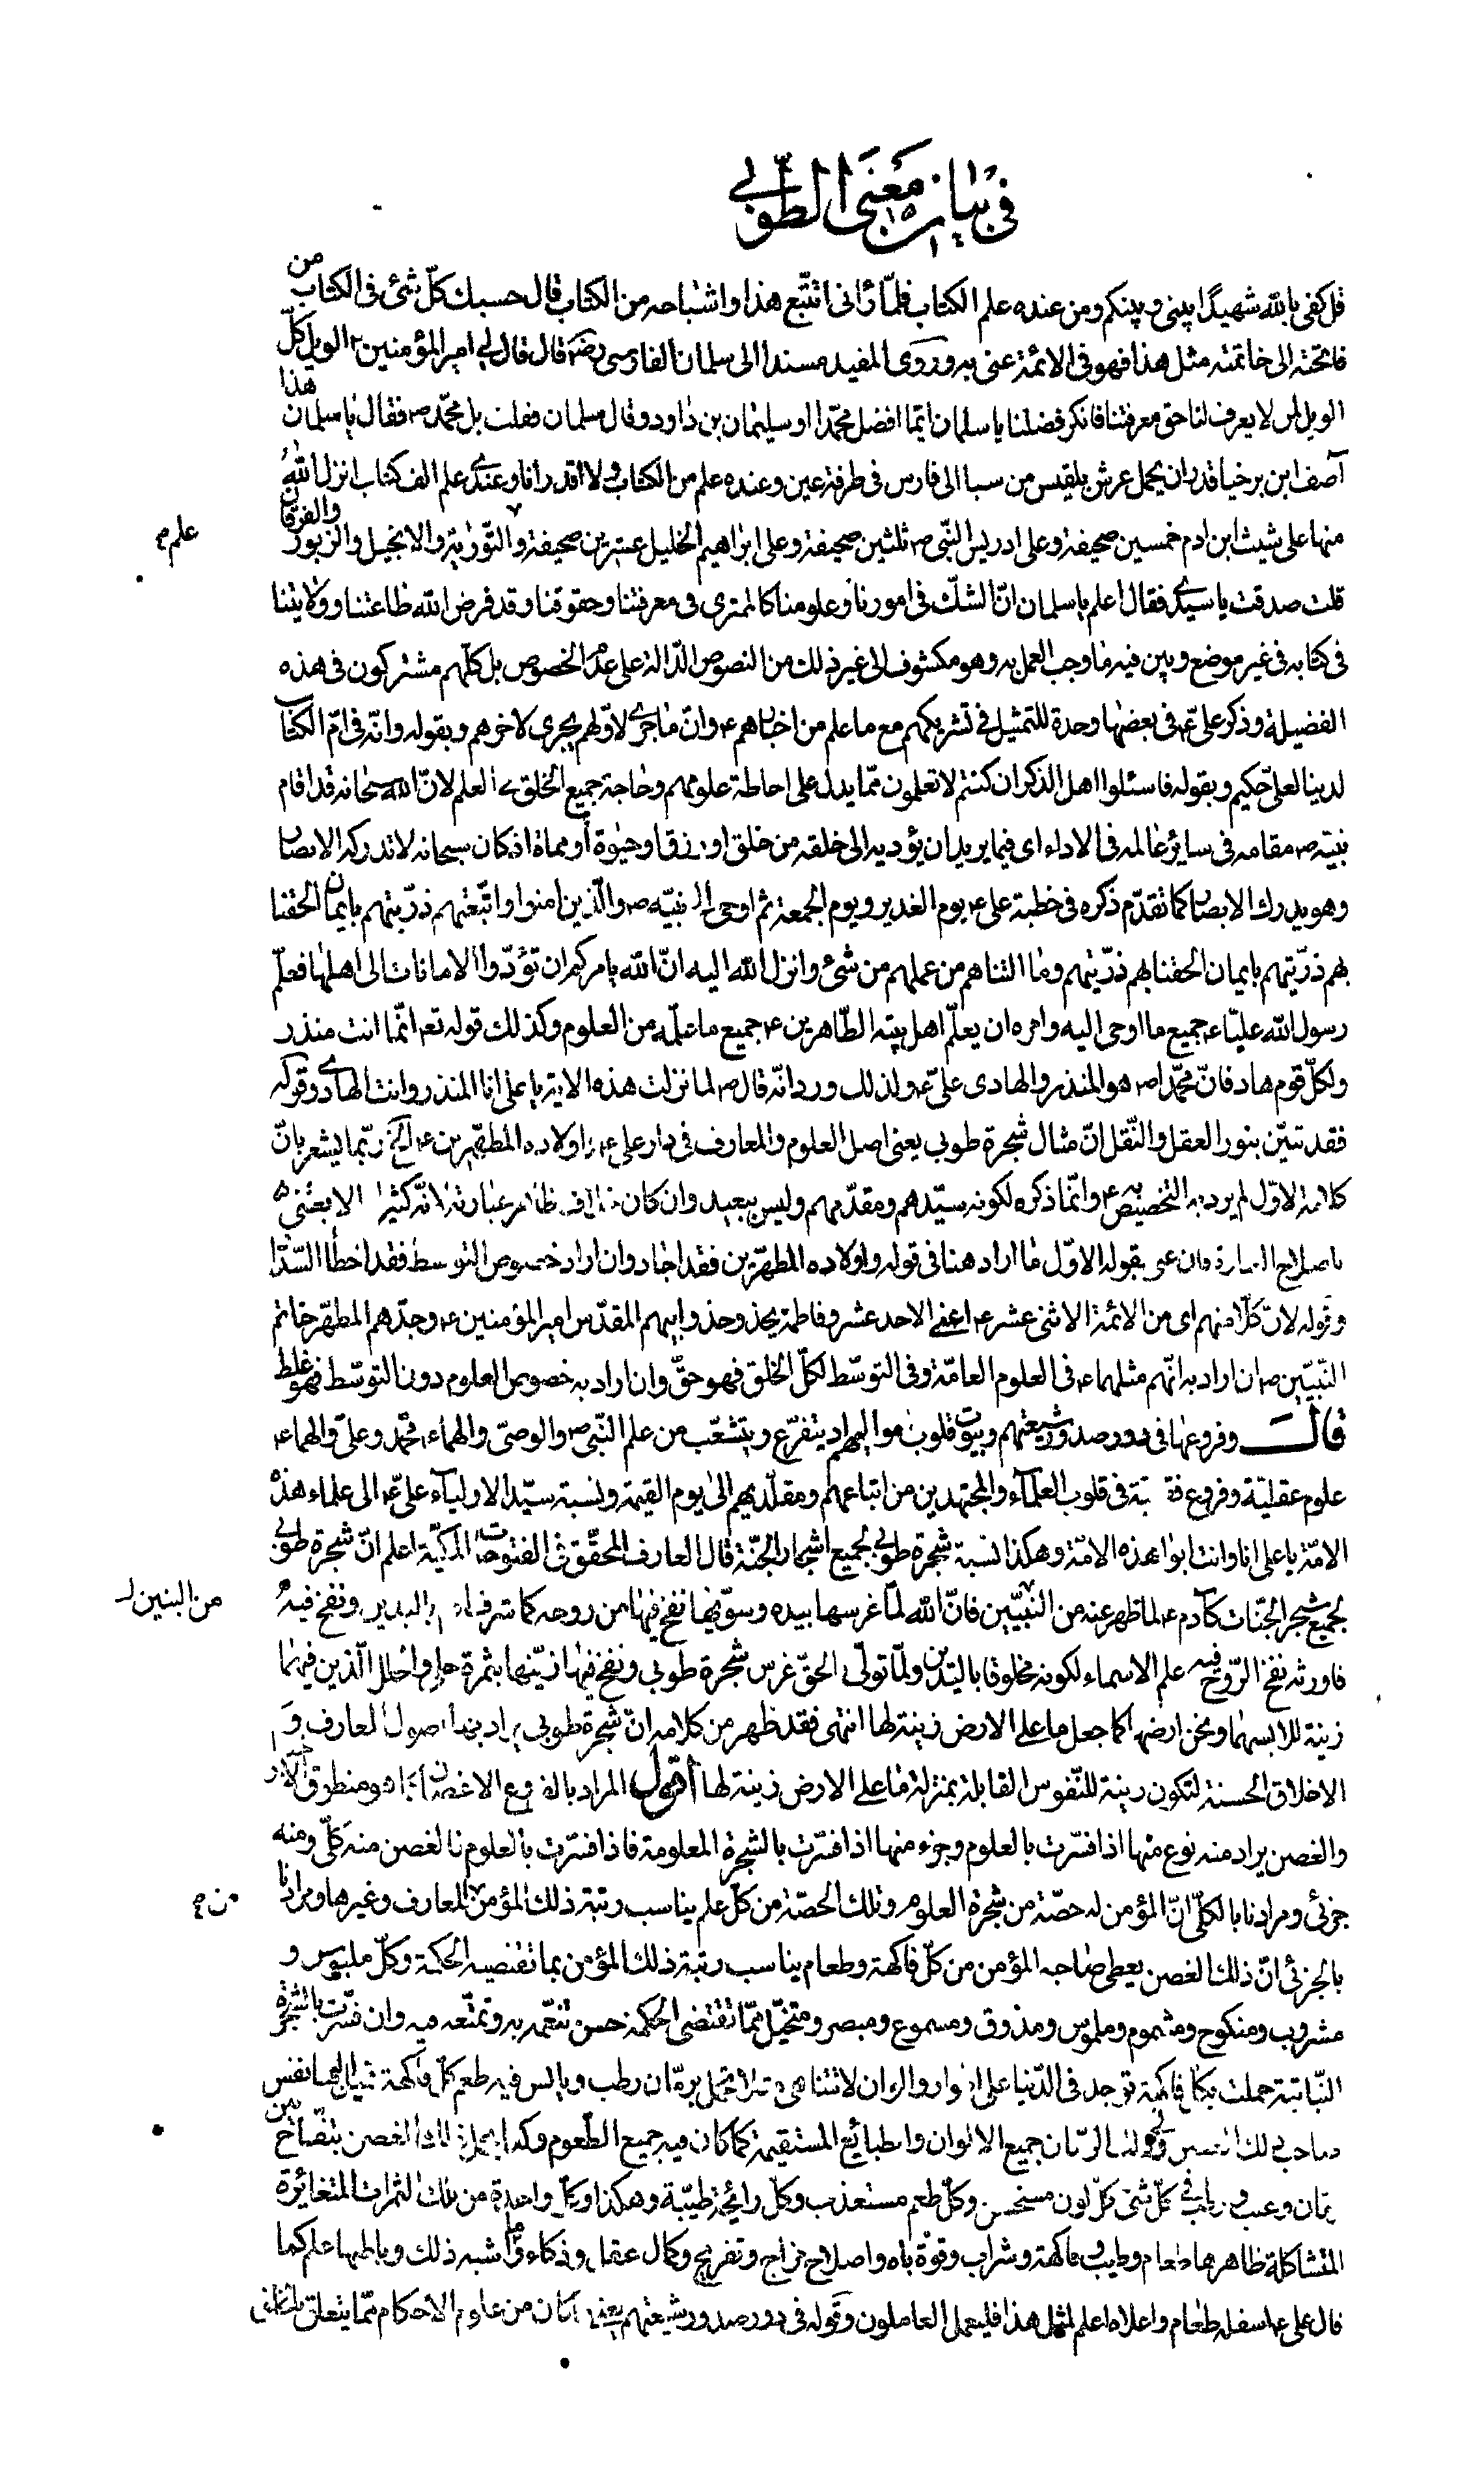 في بيان معنى الطوبي
قل كفى بالله شهيدا بيني وبينكم ومن عنده علم الكتاب فلمّا رأني اتتبّع هذا واشباهه من الكتاب قال حسبك كلّ شئ في الكتاب من
فاتحته الى خاتمته مثل هذا فهو في الائمّة عنى به وروى المفيد مسندا الى سلمان الفارسى رضه قال قال لي امير المؤمنين ع الويل كلّ
الويل لمن لا يعرف لنا حق معرفتنا فانكر فضلنا يا سلمان ايّما افضل محمّد ص او سليمان بن داود وقال سلمان فقلت بل محمّد ص فقال يا سلمان هذا
آصف ابن برخيا قدر ان يحمل عرش بلقيس من سبا الى فارس في طرفة عين وعنده علم من الكتاب ولا اقدر انا وعندي علم الف كتاب انزل الله
منها على شيث ابن ادم خمسين صحيفة وعلى ادريس النّبي ص ثلثين صحيفة وعلى ابراهيم الخليل عشرين صحيفة والتّورية والانجيل والزبور والفرقان
علم م
قلت صدقت يا سيدي فقال اعلم يا سلمان انّ الشكّ في امورنا وعلومنا كالممترى في معرفتنا وحقوقنا وقد فرض الله طاعتنا وولايتنا
في كتابه في غير موضع وبين فيه ما وجب العمل به وهو مكشوف الى غير ذلك من النصوص الدّالة على عدم الخصوص بل كلّهم مشتركون في هذه
الفضيلة وذكر علىّ ع في بعضها وحده للتمثيل في تشريكهم مع ما علم من اخبارهم ع وانّ ما جرى لاوّلهم يجرى لاخرهم وبقوله وانّه في امّ الكتاب
لدينا لعلىّ حكيم وبقوله فاسئلوا اهل الذكر ان كنتم لا تعلمون ممّا يدل على احاطة علومهم وحاجة جميع الخلق العلم لانّ الله سبحانه قد اقام
نبيّه ص مقامه في سائر عالمه في الاداء اى فيما يريد ان يؤديه الى خلقه من خلق او رزق او حيوة او مماة اذ كان سبحانه لا تدركه الابصار
وهو يدرك الابصار كما تقدّم ذكره في خطبة على ع يوم الغدير ويوم الجمعة ثم اوحى الى نبيّه ص والّذين امنوا واتّبعتهم ذرّيتهم بايمان الحقنا
بهم ذرّيتهم بايمان الحقنا بهم ذرّيتهم وما التناهم من عملهم من شئ وانزل الله اليه انّ الله يامركم ان تؤدّوا الامانات الى اهلها فعلّم
رسول الله عليّا ع جميع ما اوحى اليه وامره ان يعلّم اهل بيته الطّاهرين ع جميع ما علّمه من العلوم وكذلك قوله تع انّما انت منذر
ولكلّ قوم هاد فانّ محمّدا ص هو المنذر والهادى علىّ ع ولذلك ورد انّه قال ص لما نزلت هذه الاية يا على انا المنذر وانت الهادي وقوله
فقد تبيّن بنور العقل والنّقل انّ مثال شجرة طوبى يعنى اصل العلوم والمعارف في دار على ع واولاده المطهّرين ع الخ ربّما يشعر بانّ
كلامه الاوّل لم يرد به التخصيص به ع وانّما ذكره لكونه سيّدهم ومقدّمهم وليس ببعيد وان كان خلاف ظاهر عبارته لانّه كثيرا لا يعتنى
باصلاح العبارة فان عنى بقوله الاوّل ما اراد هنا في قوله واولاده المطهّرين فقد اجاد وان اراد خصوص التوسّط فقد اخطأ السّداد
وقوله لانّ كلّا منهم اى من الائمّة الاثنى عشر ع اعني الاحد عشر وفاطمة يحذو حذو ابيهم المقدّس امير المؤمنين ع وجدّهم المطهّر خاتم
النّبيّين ص ان اراد به انّهم مثلهما ع في العلوم العامّة وفي التوسّط لكلّ الخلق فهو حقّ وان اراد به خصوص العلوم دون التوسّط فهو غلط
قال وفروعها في دور صدور شيعتهم وبيوت قلوب مواليهم اذ يتفرّع ويتشعّب من علم النّبي ص والوصيّ والهما ع محمّد وعلىّ والهما ع
علوم عقليّة وفروع فقهية في قلوب العلمآء والمجتهدين من اتباعهم ومقلّديهم الى يوم القيمة ونسبة سيّد الاوليآء علىّ ع الى علماء هذه
الامّة يا على انا وانت ابوا هذه الامّة وهكذا نسبة شجرة طوبي لجميع اشجار الجنّة قال العارف المحقّق في الفتوحات المكيّة اعلم انّ شجرة طوبي
لجميع شجر الجنّات كآدم ع لما ظهر عنه من النبيّين فانّ الله لمّا غرسها بيده وسوّيها نفخ فيها من روحه كما شرف ادم باليدين ونفخ فيه
من البنين ل
فاورثه نفخ الرّوح فيه علم الاسماء لكونه مخلوقا باليدين ولمّا تولّى الحقّ غرس شجرة طوبى ونفخ فيها زيّنها بثمرة حلي وحلل الّذين فيهما
زينة للابسهما ونحن ارضها كما جعل ما على الارض زينة لها انتهى فقد ظهر من كلامه انّ شجرة طوبى يراد بها اصول المعارف و
الاخلاق الحسنة لتكون زينة للنّفوس القابلة بمنزلة ما على الارض زينة لها اقول المراد بالفروع الاغصان
والغصن يراد منه نوع منها اذا فسّرت بالعلوم وجزء منها اذا فسّرت بالشجرة المعلومة فاذا فسّرت بالعلوم فالغصن منه كلّى ومنه
جزئى ومرادنا بالكلّى انّ المؤمن له حصّة من شجرة العلوم وتلك الحصّة من كلّ علم يناسب رتبة ذلك المؤمن المعارف وغيرها ومرادنا
من م
بالجزئى انّ ذلك الغصن يعطى صاحبه المؤمن من كلّ فاكهة وطعام يناسب رتبة ذلك المؤمن بما تقتضيه الحكمة وكلّ ملبوس و
مشروب ومنكوح ومشموم وملموس ومذوق ومسموع ومبصر ومتخيّل ممّا تقتضى الحكمة حسن تنعّمه به وتمتّعه فيه وان فسّرت بالشجرة
النّباتية حملت بكلّ فاكهة توجد في الدّنيا على اطوار والوان لا تتناهى مثلا تحمل برمّان رطب ويابس فيه طعم كلّ فاكهة
الرّمان جميع الالوان والطبائع المستقيمة كما كان فيه جميع الطّعوم وكذا يحمل ذلك الغصن بتفّاح
وعنب كلّ شئ كلّ لون مستحسن وكلّ طعم مستعذب وكلّ رائحة طيّبة وهكذا وكلّ واحدة من تلك الثمرات المتغائرة
المتشاكلة ظاهرها طعام وطيب وفاكهة وشراب وقوّة باه واصلاح مزاج وتفريح وكمال عقل وذكاء وما اشبه ذلك وباطنها علم كما
قال على ع اسفله طعام واعلاه علم لمثل هذا فليعمل العاملون وقوله في دور صدور شيعتهم يعنى كان من علوم الاحكام ممّا يتعلق